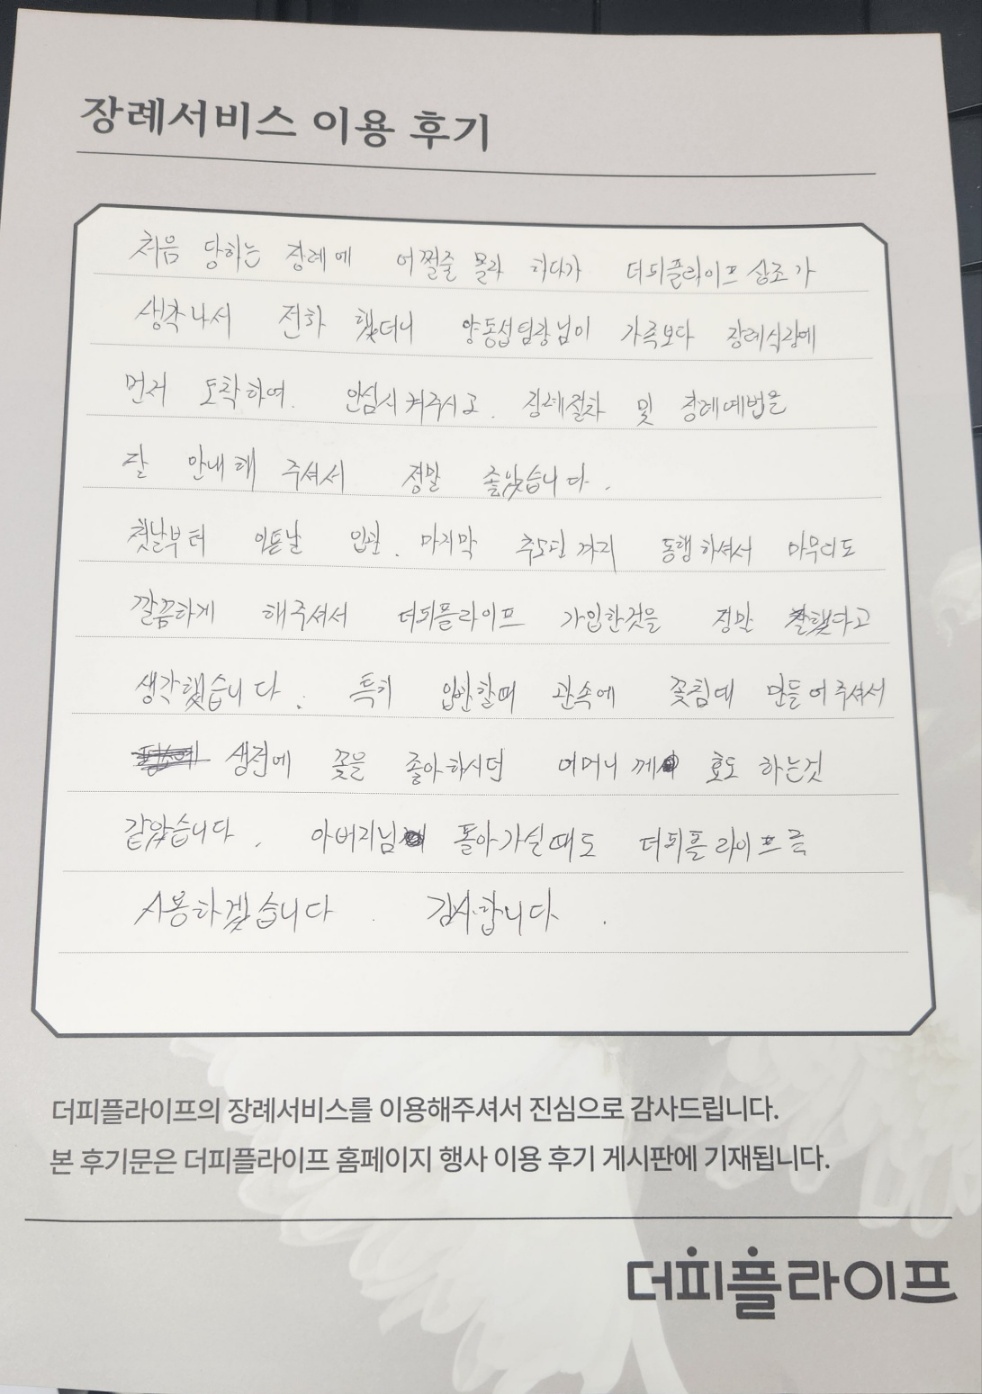 장례서비스 이용 후기
처음 당하는 장례에 어쩔줄 몰라 하다가 더피플라이프 상조가
생각나서 전화 했더니 양동섭팀장님이 가족보다 장례식장에
먼저 도착하여. 안심시켜주시고. 장례절차 및 장례예법을
잘 안내해 주셔서 정말 좋았습니다.
첫날부터 이튿날 입관. 마지막 추모관까지 동행하셔서 마무리도
깔끔하게 해주셔서 더피플라이프 가입한것을 정말 잘했다고
생각했습니다. 특히 입관할때 관속에 꽃침대 만들어주셔서
생전에 꽃을 좋아하시던 어머니께 효도 하는것
같았습니다. 아버지님 돌아가실때도 더피플라이프를
사용하겠습니다. 감사합니다.
더피플라이프의 장례서비스를 이용해주셔서 진심으로 감사드립니다.
본 후기문은 더피플라이프 홈페이지 행사 이용 후기 게시판에 기재됩니다.
더피플라이프